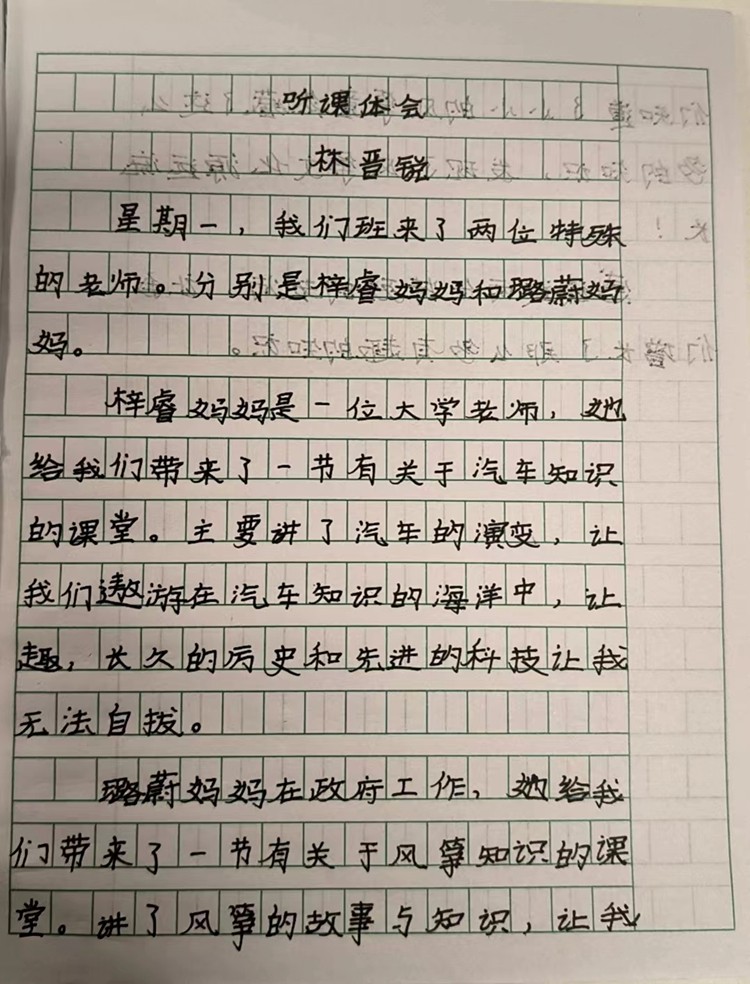 听课体会
林晋锐
星期一，我们班来了两位特殊
的老师。分别是梓睿妈妈和璐蔚妈
妈。
梓睿妈妈是一位大学老师，她
给我们带来了一节有关于汽车知识
的课堂。主要讲了汽车的演变，让
我们遨游在汽车知识的海洋中，让
趣，长久的历史和先进的科技让我
无法自拔。
璐蔚妈妈在政府工作，她给我
们带来了一节有关于风筝知识的课
堂。讲了风筝的故事与知识，让我